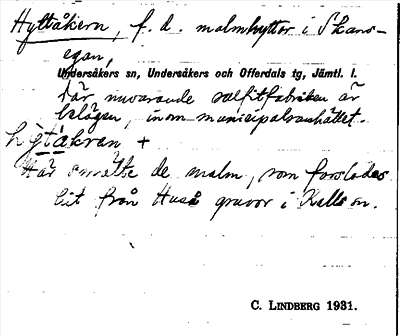 Hyttåkern, f. d. malmhyttor i Skans-
egan,
Undersåkers sn, Undersåkers och Offerdals tg, Jämtl. l.
Där nuvarande sulfitfabriken är
belägen, inom municipalsamhället.
hỳtåkran +
Här smälte de malm, som forslades
hit från Huså gruvor i Kalls sn.
C. LINDBERG 1931.